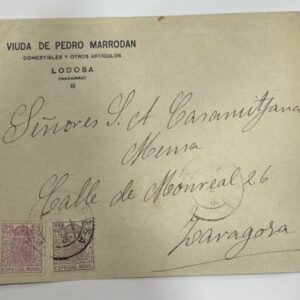 VIUDA DE PEDRO MARRODAN
COMESTIBLES Y OTROS ARTÍCULOS
LODOSA
(NAVARRA)
Señores S. A. Casamitjana
Mensa
Calle de Monreal 26
Zaragoza
ESPECIAL MÓVIL
ESPECIAL MÓVIL